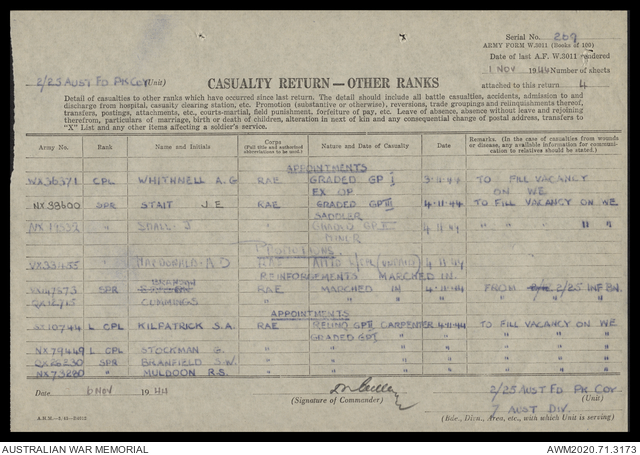 Serial No. 209
ARMY FORM W.3011 (Books of 100)
Date of last A.F. W.3011 rendered
1 NOV 1944 Number of sheets
attached to this return. 4
2/25 AUST FD PK COY (Unit)
CASUALTY RETURN—OTHER RANKS
Detail of casualties to other ranks which have occurred since last return. The detail should include all battle casualties, accidents, admission to and
discharge from hospital, casualty clearing station, etc. Promotion (substantive or otherwise), reversions, trade groupings and relinquishments thereof,
transfers, postings, attachments, etc., courts-martial, field punishment, forfeiture of pay, etc. Leave of absence, absence without leave and rejoining
therefrom, particulars of marriage, birth or death of children, alteration in next of kin and any consequential change of postal address, transfers to
"X" List and any other items affecting a soldier's service.
Army No. Rank Name and Initials Corps (Full title and authorised abbreviations to be used.) Nature and Date of Casualty Date Remarks. (In the case of casualties from wounds or disease, any available information for communication to relatives should be stated.)
APPOINTMENTS
CPL WHITHNELL A.G RAE GRADED GP I 3.11.44 TO FILL VACANCY
EX OP ON WE
NX38600 SPR STAIT J E RAE GRADED GP III 4.11.44 TO FILL VACANCY ON WE
SADDLER
" SMALL J " GRADED GP II 4.11.44 " " "
MINER
PROMOTIONS
MACDONALD A.D 4.11.44
REINFORCEMENTS MARCHED IN.
SPR RAE MARCHED IN 4.11.44 FROM 2/25 INF BN.
" CUMMINGS " " " " " "
APPOINTMENTS
L CPL KILPATRICK S.A. RAE RELINQ GP II CARPENTER 4.11.44 TO FILL VACANCY ON WE
GRADED GP I " " " "
NX79449 L CPL STOCKMAN G. " " " " " "
SPR BRANFIELD S.W. " " " " " "
NX73280 " MULDOON R.S. " " " " " "
Date 6 NOV 1944
(Signature of Commander)
2/25 AUST FD PK COY
(Unit)
7 AUST DIV
(Bde., Divn., Area, etc., with which Unit is serving)
AUSTRALIAN WAR MEMORIAL
AWM2020.71.3173